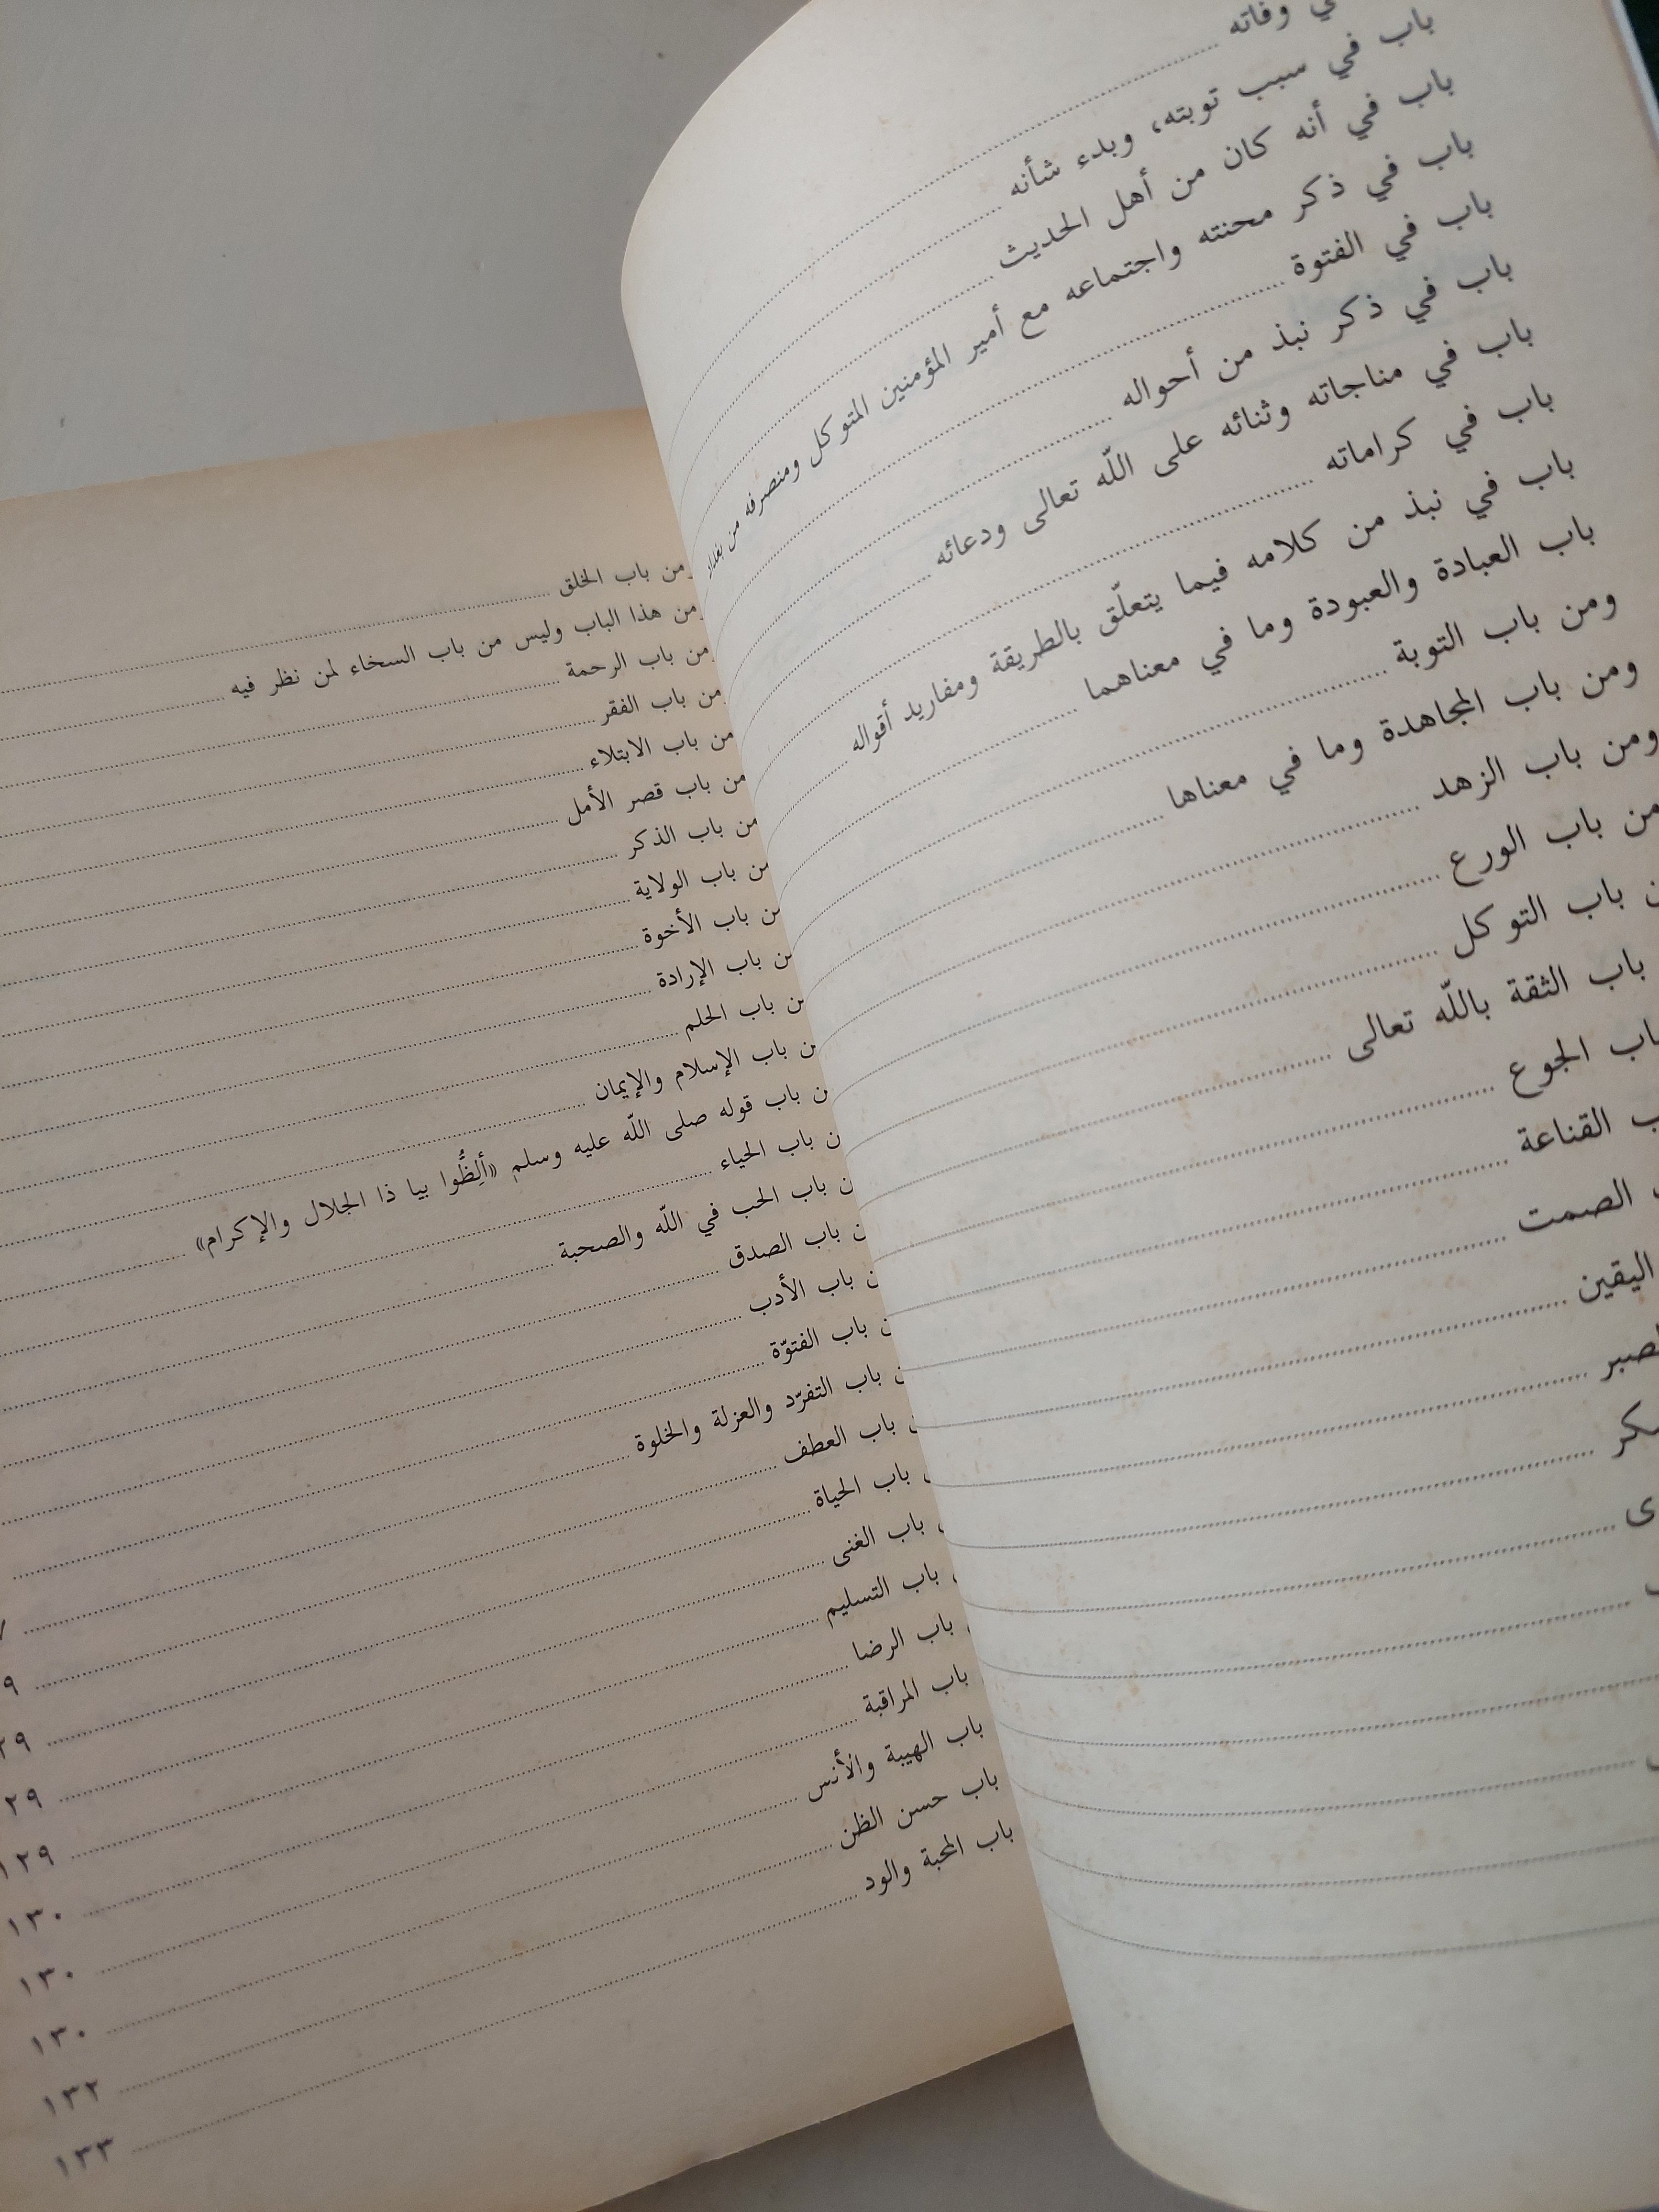 وفاته
باب في سبب توبته، وبدء شأنه
باب في أنه كان من أهل الحديث
باب في ذكر محنته واجتماعه مع أمير المؤمنين المتوكل ومنصرفه من بغداد
باب في الفتوة
باب في ذكر نبذ من أحواله
باب في مناجاته وثنائه على اللّه تعالى ودعائه
باب في كراماته
باب في نبذ من كلامه فيما يتعلّق بالطريقة ومفاريد أقواله
باب العبادة والعبودة وما في معناهما
ومن باب التوبة
ومن باب المجاهدة وما في معناها
ومن باب الزهد
من باب الورع
باب التوكل
باب الثقة باللّه تعالى
باب الجوع
القناعة
الصمت
اليقين
ومن باب الخلق
من هذا الباب وليس من باب السخاء لمن نظر فيه
من باب الرحمة
من باب الفقر
من باب الابتلاء
من باب قصر الأمل
من باب الذكر
من باب الولاية
باب الأخوة
باب الإرادة
باب الحلم
باب الإسلام والإيمان
باب قوله صلى اللّه عليه وسلم «ألِظُّوا بيا ذا الجلال والإكرام»
باب الحياء
باب الحب في اللّه والصحبة
باب الصدق
باب الأدب
باب الفتوّة
باب التفرّد والعزلة والخلوة
باب العطف
باب الحياة
باب الغنى
باب التسليم ١٢٩
باب الرضا ١٣٠
باب المراقبة ١٣٠
باب الهيبة والأنس ١٣٠
باب حسن الظن ١٣٢
باب المحبة والود ١٣٣